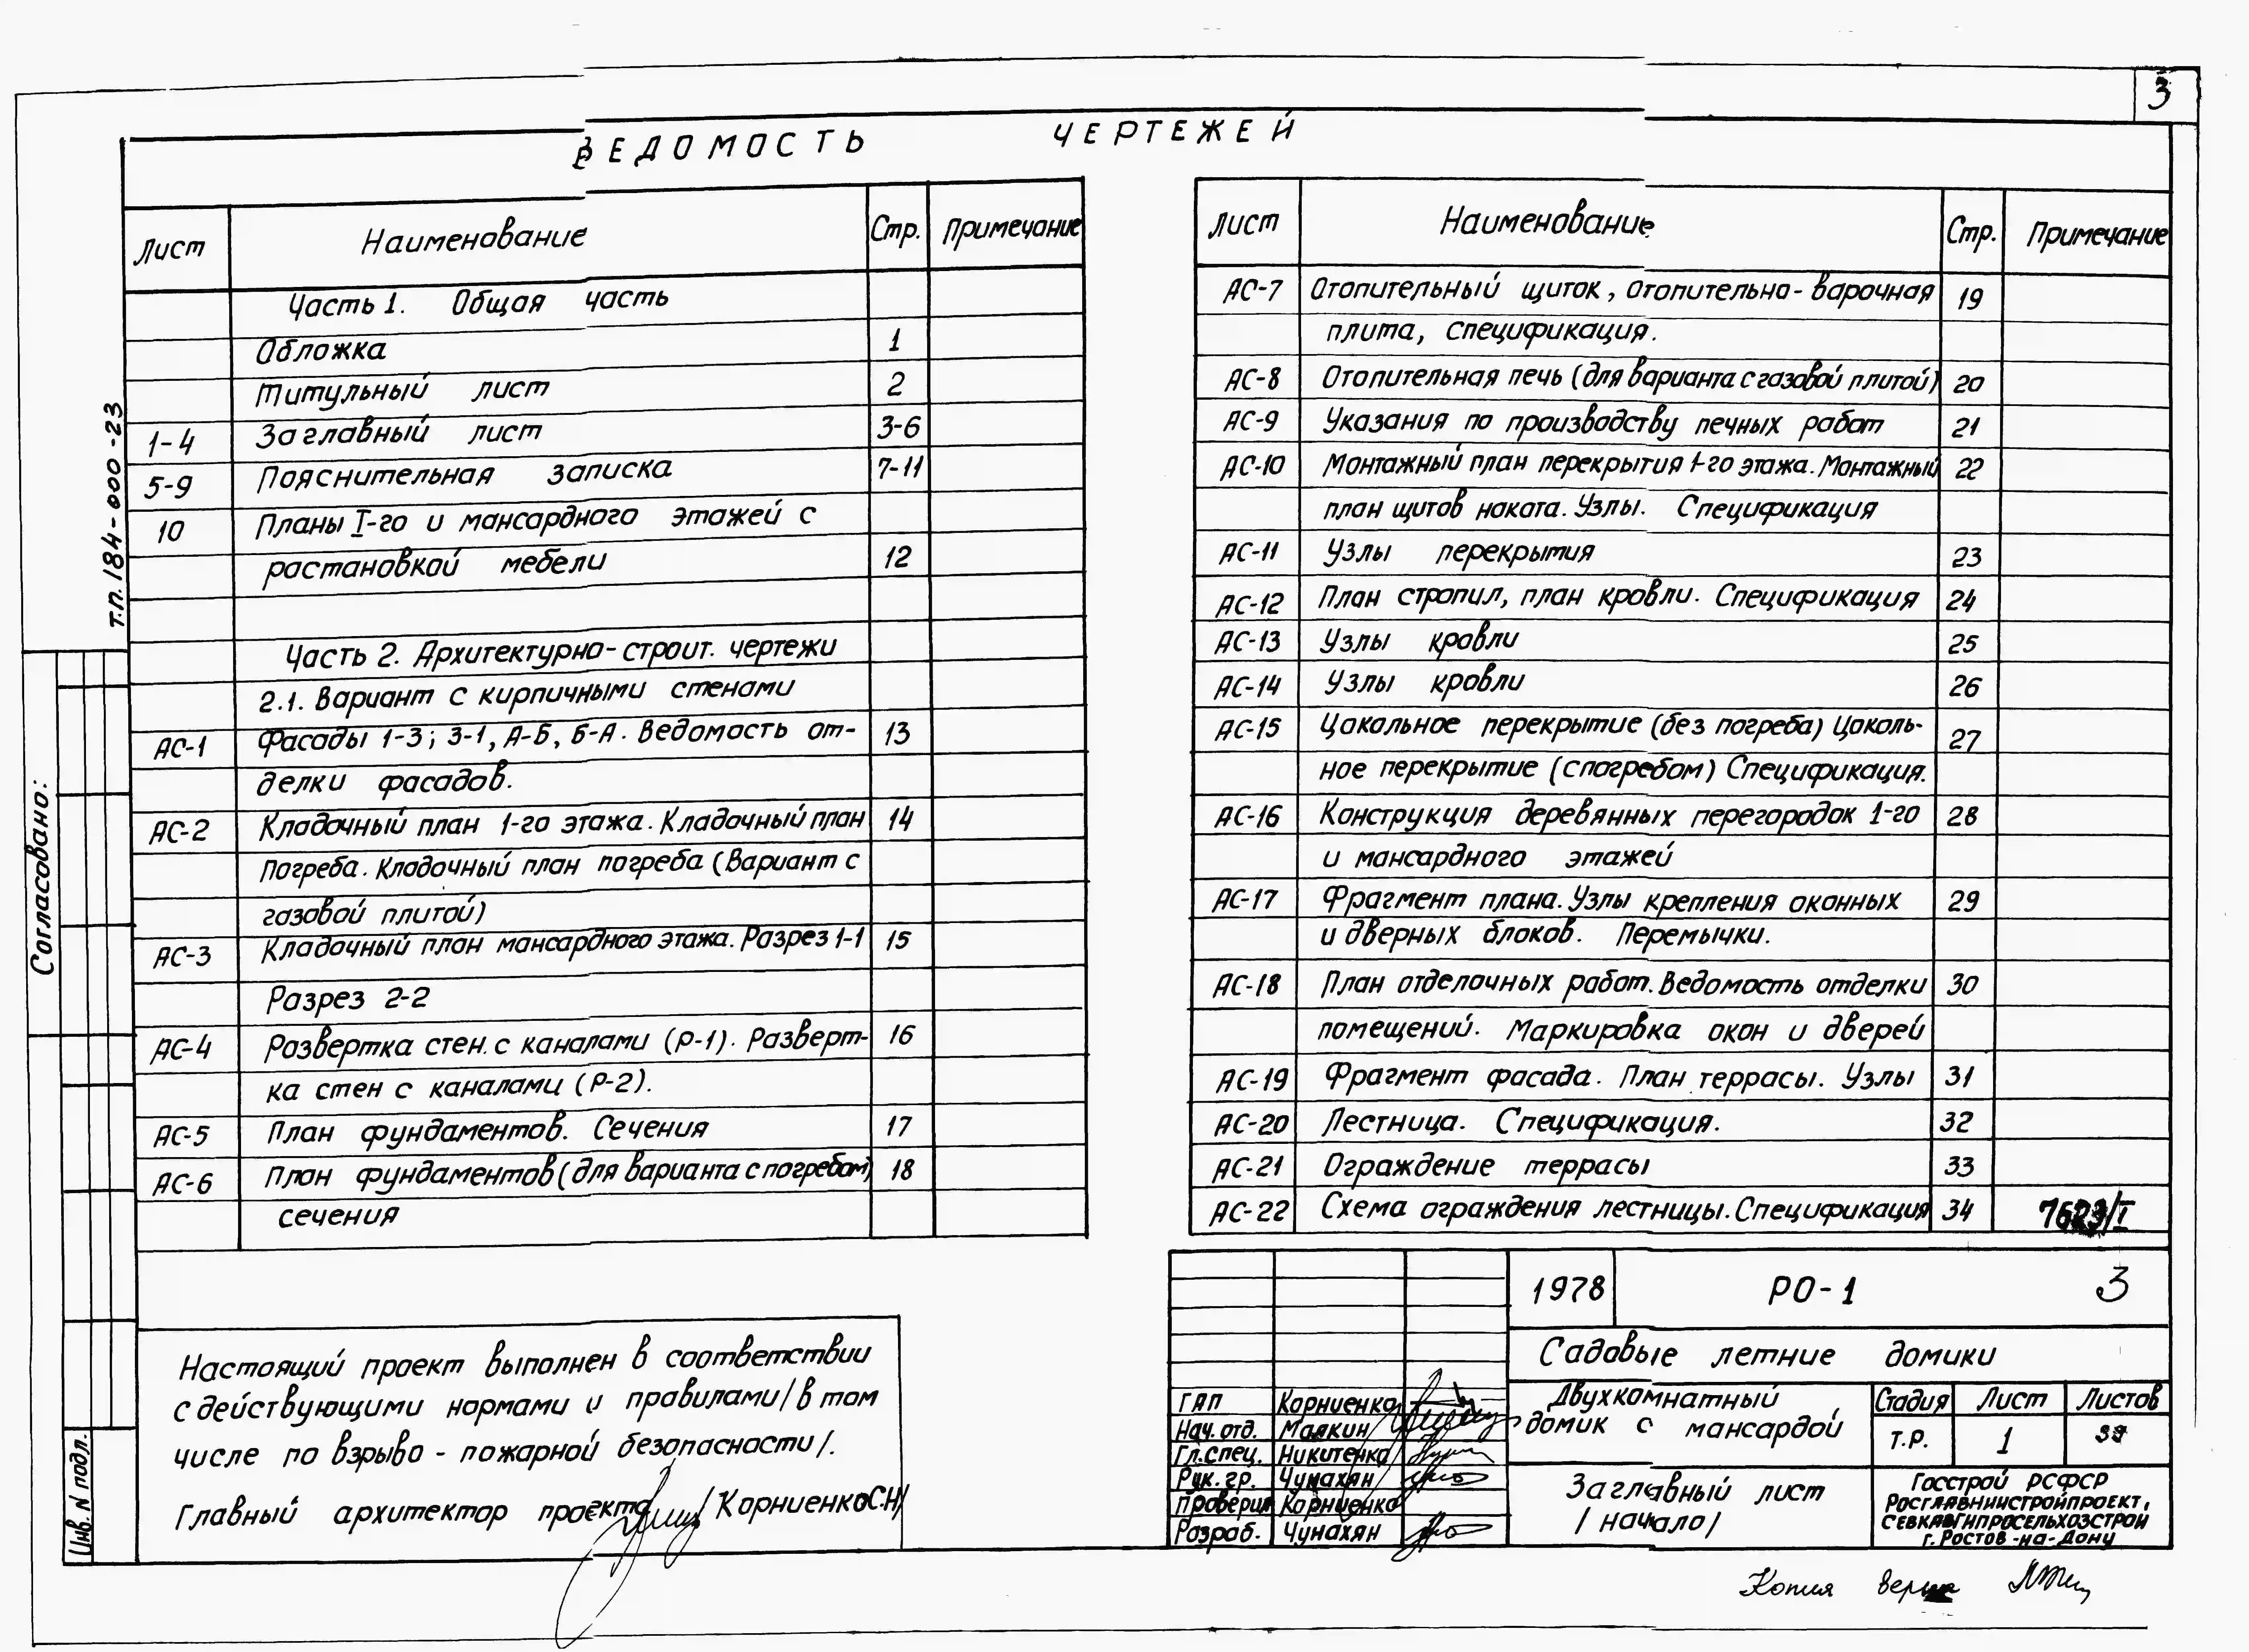 3
ВЕДОМОСТЬ ЧЕРТЕЖЕЙ
т.п. 184-000-23
Согласовано:
Инв. N подл.
Лист Наименование Стр. Примечание
Часть 1. Общая часть
Обложка 1
Титульный лист 2
1-4 Заглавный лист 3-6
5-9 Пояснительная записка 7-11
10 Планы I-го и мансардного этажей с
растановкой мебели 12
Часть 2. Архитектурно-строит. чертежи
2.1. Вариант с кирпичными стенами
АС-1 Фасады 1-3; 3-1, А-Б, Б-А. Ведомость от- 13
делки фасадов.
АС-2 Кладочный план 1-го этажа. Кладочный план 14
погреба. Кладочный план погреба (Вариант с
газовой плитой)
АС-3 Кладочный план мансардного этажа. Разрез 1-1 15
Разрез 2-2
АС-4 Развертка стен с каналами (Р-1). Разверт- 16
ка стен с каналами (Р-2).
АС-5 План фундаментов. Сечения 17
АС-6 План фундаментов (для варианта с погребом) 18
сечения
Лист Наименование Стр. Примечание
АС-7 Отопительный щиток, отопительно-варочная 19
плита, спецификация.
АС-8 Отопительная печь (для варианта с газовой плитой) 20
АС-9 Указания по производству печных работ 21
АС-10 Монтажный план перекрытия 1-го этажа. Монтажный 22
план щитов наката. Узлы. Спецификация
АС-11 Узлы перекрытия 23
АС-12 План стропил, план кровли. Спецификация 24
АС-13 Узлы кровли 25
АС-14 Узлы кровли 26
АС-15 Цокольное перекрытие (без погреба) Цоколь- 27
ное перекрытие (с погребом) Спецификация.
АС-16 Конструкция деревянных перегородок 1-го 28
и мансардного этажей
АС-17 Фрагмент плана. Узлы крепления оконных 29
и дверных блоков. Перемычки.
АС-18 План отделочных работ. Ведомость отделки 30
помещений. Маркировка окон и дверей
АС-19 Фрагмент фасада. План террасы. Узлы 31
АС-20 Лестница. Спецификация. 32
АС-21 Ограждение террасы 33
АС-22 Схема ограждения лестницы. Спецификация 34
Настоящий проект выполнен в соответствии
с действующими нормами и правилами/в том
числе по взрыво-пожарной безопасности/.
Главный архитектор проекта /Корниенко С.Н/
1978 РО-1 3
Садовые летние домики
Двухкомнатный
домик с мансардой
Стадия Лист Листов
т.р. 1
Заглавный лист
/начало/
Госстрой РСФСР
РОСГЛАВНИИСТРОЙПРОЕКТ,
СЕВКАВГИПРОСЕЛЬХОЗСТРОЙ
г. Ростов-на-Дону
ГАП Корниенко
Нач. отд. Малкин
Гл. спец. Никитенко
Рук. гр. Чунахян
Проверил Корниенко
Разраб. Чунахян
Копия верна